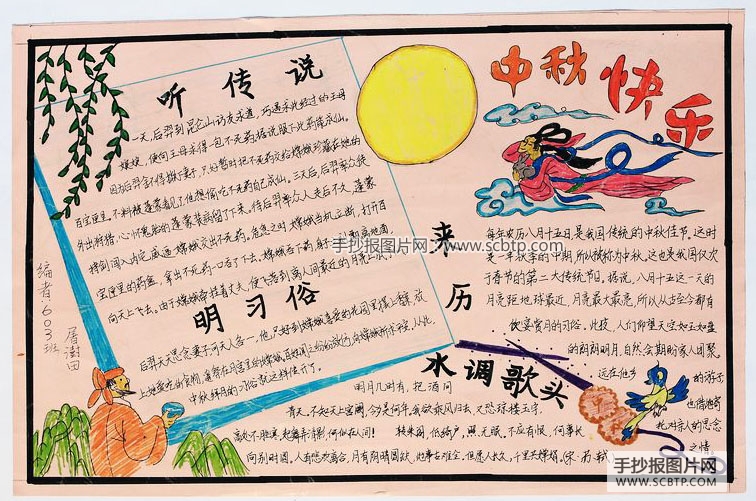 听传说
一天,后羿到昆仑山访友求道,巧遇由此经过的王母
娘娘,便向王母求得一包不死药,据说服下此药
因为后羿舍不得撇下妻子,只好暂时把不死药交给嫦娥珍藏在她的
百宝匣里。不料被蓬蒙看见了他想偷吃不死药自己成仙。三天后,后羿率众徒
外出狩猎,心怀鬼胎的蓬蒙装病留了下来。待后羿率众人走后不久,蓬蒙
持剑闯入内院,威逼嫦娥交出不死药。危急之时嫦娥当机立断,打开百
宝匣里的药盒,拿出不死药一口吞了下去。嫦娥吞下药,身子
向天上飞去。由于嫦娥牵挂着丈夫,便飞落到离人间最近的月亮上
明习俗
后羿天天思念妻子
中秋拜月的习俗就这样传开了。
编者:603班
屠澍田
中秋快乐
来历
每年农历八月十五日,是我国传统的中秋佳节,这时
是一年秋季的中期,所以被称为中秋,这也是我国仅次
于春节的第二大传统节日。据说,八月十五这一天的
月亮距地球最近,月亮最大最亮,所以从古至今都有
饮宴赏月的习俗。此夜,人们仰望天空如玉如盘
的朗朗明月,自然会期盼家人团聚。
远在他乡的游子
也借此寄
托对亲人的思念
之情
水调歌头
明月几时有,把酒问
青天,不知天上宫阙,今夕是何年,我欲乘风归去,又恐琼楼玉宇,
高处不胜寒,起舞弄清影,何似在人间!转朱阁,低绮户,照无眠,不应有恨,何事长
向别时圆。人有悲欢离合,月有阴晴圆缺,此事古难全。但愿人长久,千里共婵娟。(宋·苏轼
手抄报图片网
www.scbtp.com
手抄报图片网
WWW.SCBTP.COM